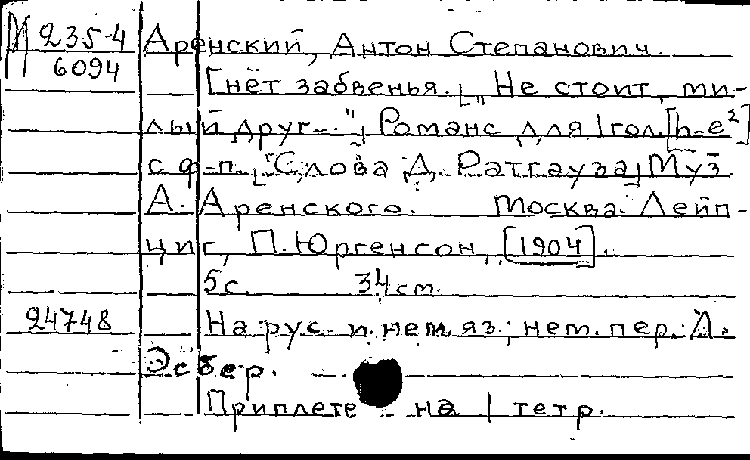 М 235-4
6094
Аренский, Антон Степанович.
[нет забвенья. „Не стоит, ми-
лый друг..."] Романс для 1 гол. [h-e²]
с ф-п. [Слова Д. Ратгауза] Муз.
А. Аренского. Москва. Лейп-
циг, П. Юргенсон, [1904].
5 с. 34 см.
24748
На рус. и нем. яз.; нем. пер. А.
Эсбер.
Приплете на 1 тетр.